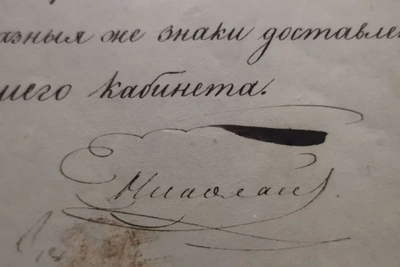 азныя же знаки доставле
шего кабинета.
Николай